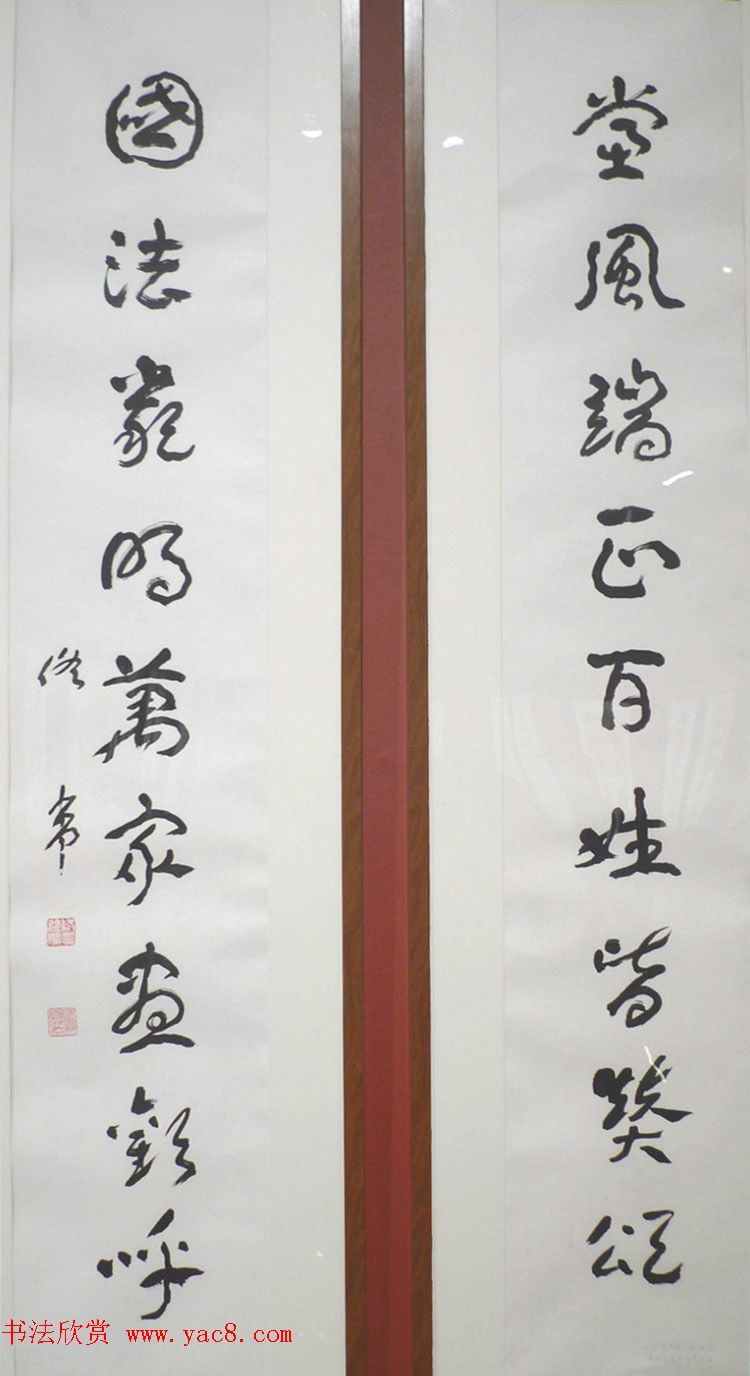 黨風端正百姓皆贊頌
國法嚴明萬家盡歡呼
佟韋
书法欣赏 www.yac8.com